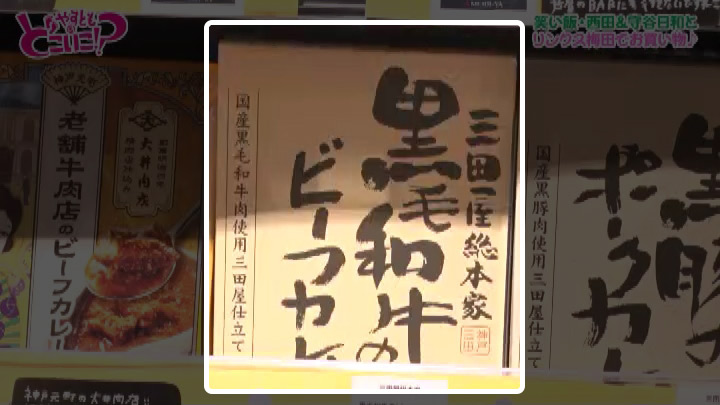 かやすとものどこいこ!?
笑い飯・西田&守谷日和と
リンクス梅田でお買い物♪
神戸元町
老舗牛肉店のビーフカレー
大井肉店
三田屋総本家
黒毛和牛の
ビーフカレ
国産黒毛和牛肉使用三田屋仕立て
神戸
三田
黒豚
ポークカ
国産黒豚肉使用三田屋仕立て
神元町の大井肉店!!